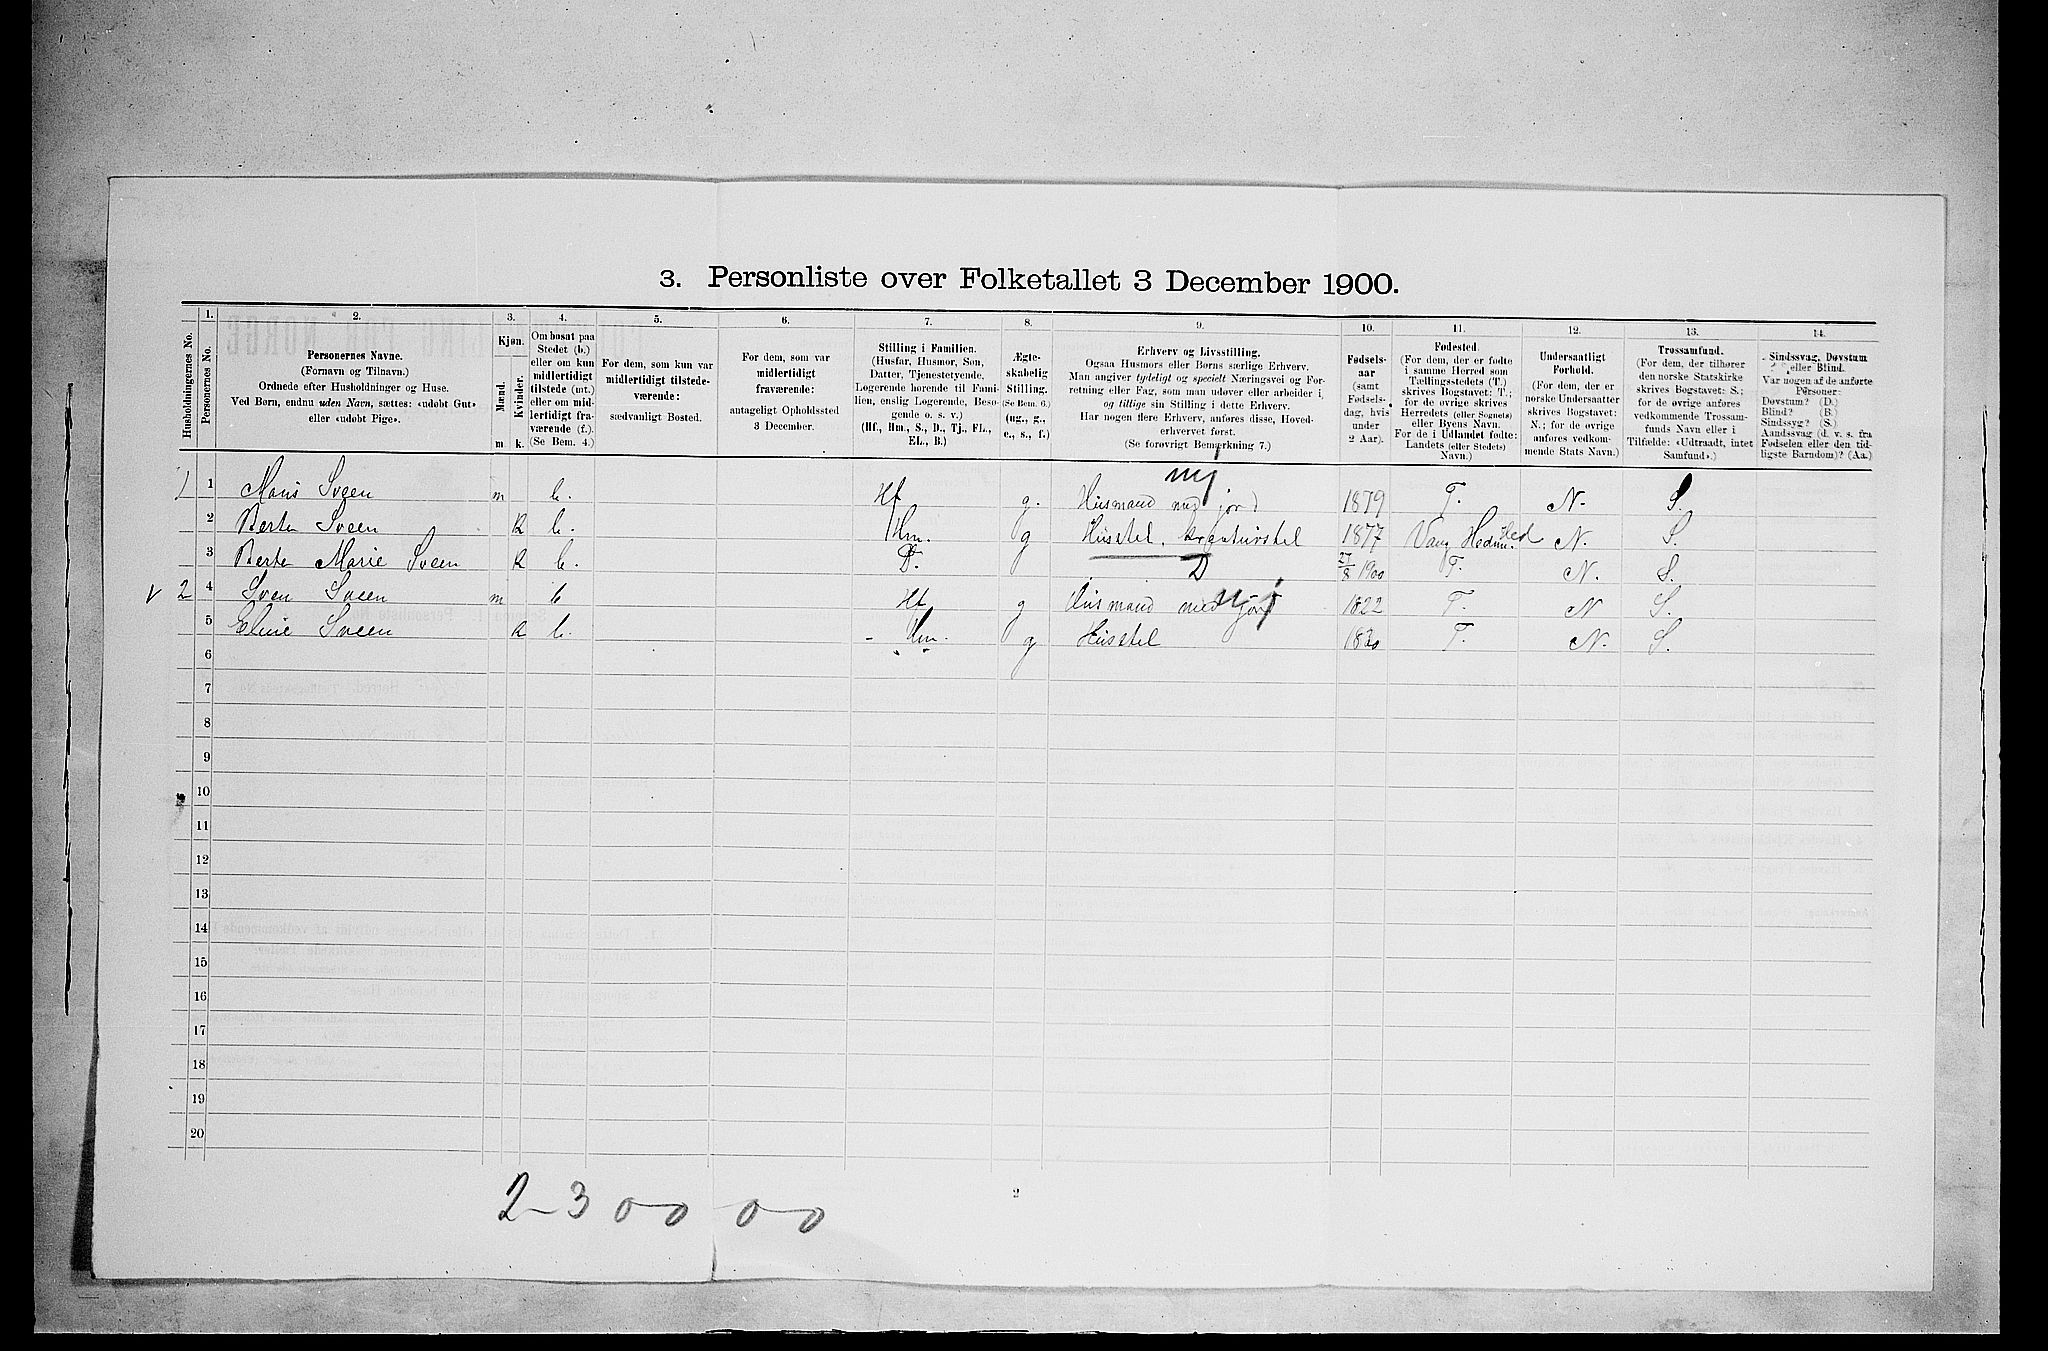 3. Personliste over Folketallet 3 December 1900.
1. 2. 3. 4. 5. 6. 7. 8. 9. 10. 11. 12. 13. 14.
Husholdningernes No.
Personernes No.
Personernes Navne.
(Fornavn og Tilnavn.)
Ordnede efter Husholdninger og Huse.
Ved Børn, endnu uden Navn, sættes: «udøbt Gut»
eller «udøbt Pige».
Kjøn.
Mænd.
Kvinder.
m k.
Om bosat paa
Stedet (b.)
eller om kun
midlertidigt
tilstede (mt.)
eller om mid-
lertidigt fra-
værende (f.)
(Se Bem. 4.)
For dem, som kun var
midlertidigt tilstede-
værende:
sædvanligt Bosted.
For dem, som var
midlertidigt
fraværende:
antageligt Opholdssted
3 December.
Stilling i Familien.
(Husfar, Husmor, Søn,
Datter, Tjenestetyende,
Logerende hørende til Fami-
lien, enslig Logerende, Besø-
gende o. s. v.)
(Hf., Hm., S., D., Tj., FL.,
EL., B.)
Ægte-
skabelig
Stilling.
(Se Bem. 6.)
(ug., g.,
e., s., f.)
Erhverv og Livsstilling.
Ogsaa Husmors eller Børns særlige Erhverv.
Man angiver tydeligt og specielt Næringsvei og For-
retning eller Fag, som man udøver eller arbeider i,
og tillige sin Stilling i dette Erhverv.
Har nogen flere Erhverv, anføres disse, Hoved-
erhvervet først.
(Se forøvrigt Bemærkning 7.)
Fødsels-
aar
(samt
Fødsels-
dag, hvis
under
2 Aar).
Fødested.
(For dem, der er fødte
i samme Herred som
Tællingsstedets (T.)
skrives Bogstavet: T.;
for de øvrige skrives
Herredets (eller Sognets)
eller Byens Navn.
For de i Udlandet fødte:
Landets (eller Stedets)
Navn.)
Undersaatligt
Forhold.
(For dem, der er
norske Undersaatter
skrives Bogstavet:
N.; for de øvrige
anføres vedkom-
mende Stats Navn.)
Trossamfund.
(For dem, der tilhører
den norske Statskirke
skrives Bogstavet: S.;
for de øvrige anføres
vedkommende Trossam-
funds Navn eller i
Tilfælde: «Udtraadt, intet
Samfund».)
Sindssvag, Døvstum
eller Blind.
Var nogen af de anførte
Personer:
Døvstum? (D.)
Blind? (B.)
Sindssyg? (S.)
Aandssvag (d. v. s. fra
Fødselen eller den tid-
ligste Barndom)? (Aa.)
1 1 Sveen m b. Hf g. Husmand med jord 1879 T. N. S.
2 Berte Sveen k b. Hm. g Husstel, kreaturstel 1877 Vang Hedm. N. S.
3 Berte Marie Sveen k b. D. D 27/8 1900 T. N. S.
v 2 4 Sven Sveen m b Hf g Husmand med jord 1822 T. N S.
5 Sveen k b. - Hm. g Husstel 1830 T. N. S.
6
7
8
9
10
11
12
13
14
15
16
17
18
19
20
2-3 00 00
2